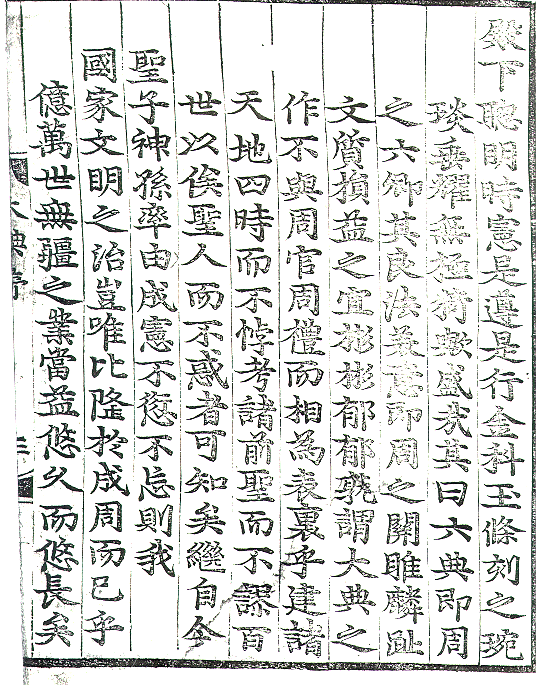 殿下聰明時憲是遵是行金科玉條刻之琬
琰垂耀無極猗歟盛哉其曰六典卽周
之六卿其良法美意卽周之關雎麟趾
文質損益之宜彬彬郁郁孰謂大典之
作不與周官周禮而相爲表裏乎建諸
天地四時而不悖考諸前聖而不謬百
世以俟聖人而不惑者可知矣繼自今
聖子神孫率由成憲不愆不忘則我
國家文明之治豈唯比隆於成周而已乎
億萬世無疆之業當益悠久而悠長矣